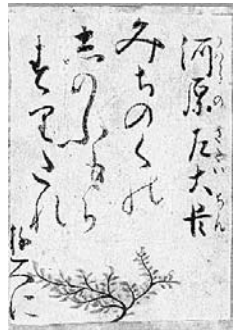 河原左大臣
みちのくの
しのふもち
すりたれ
ゆゑに